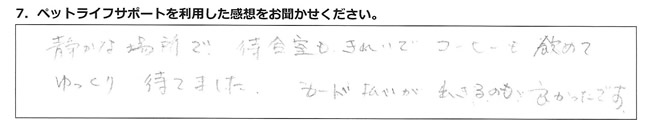 7．ペットライフサポートを利用した感想をお聞かせください。
静かな場所で！ 待合室も、きれいで コーヒーも 飲めて
ゆっくり 待てました。 カード払いが 出きるのも 良かったです